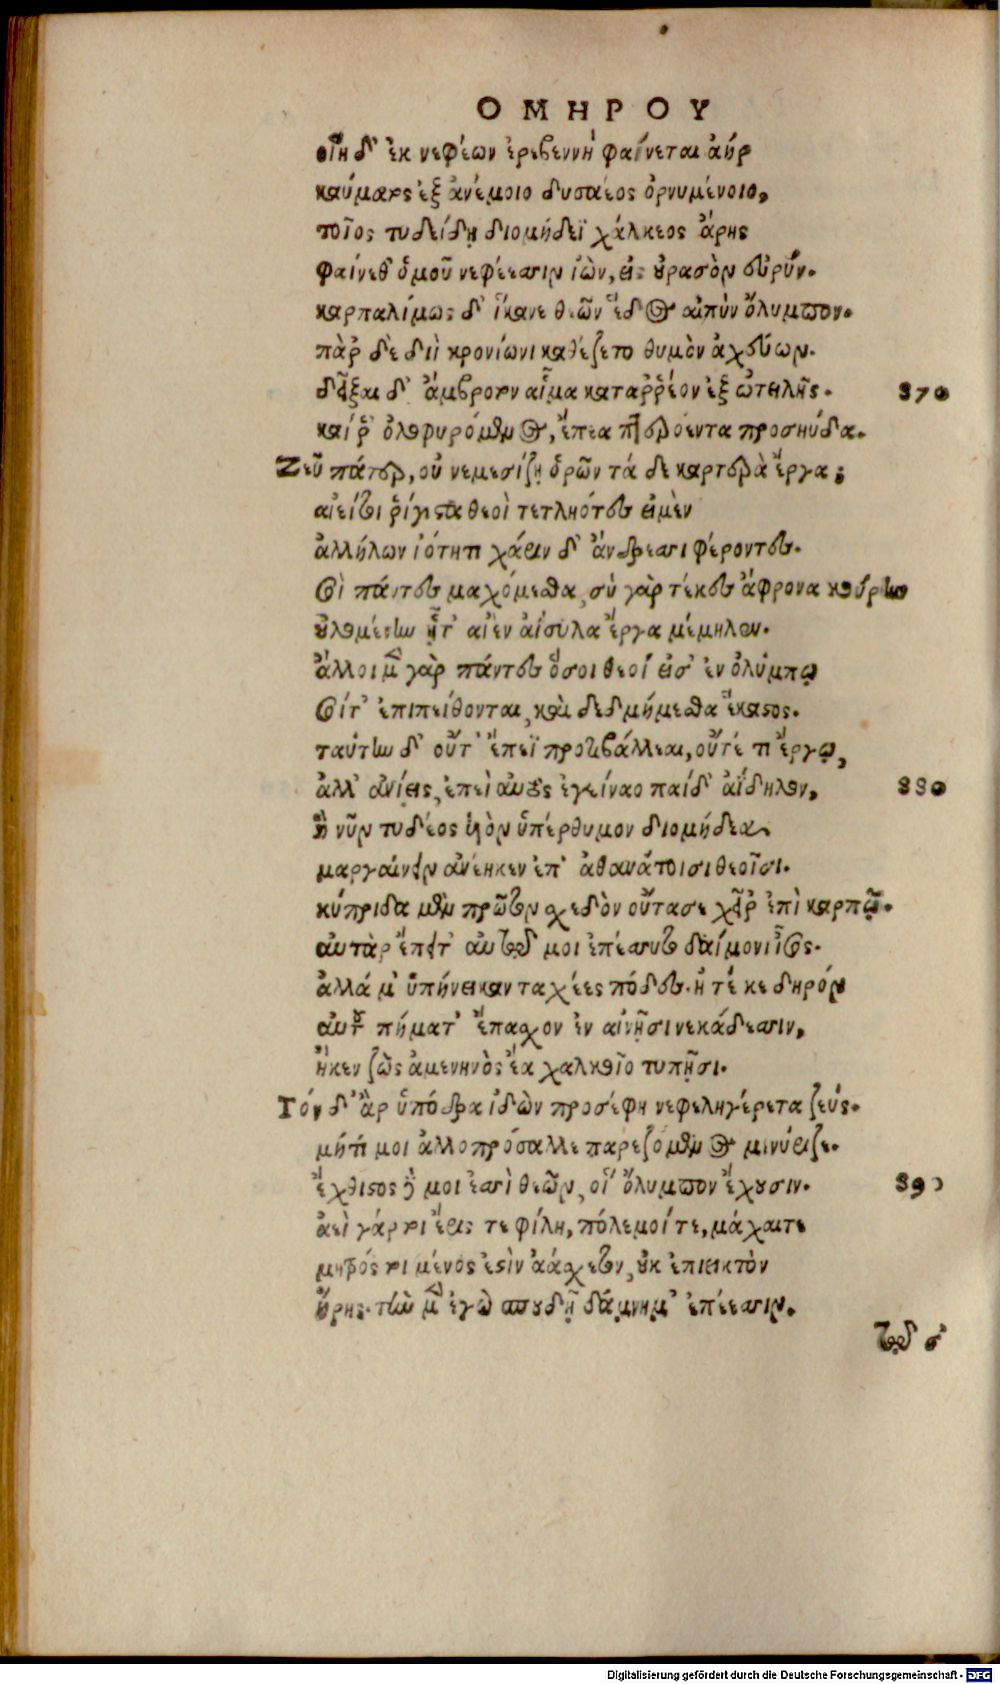 ΟΜΗΡΟΥ
οἵη δ' ἐκ νεφέων ἐρεβεννὴ φαίνεται ἀήρ
καύματος ἐξ ἀνέμοιο δυσαέος ὀρνυμένοιο,
τοῖος τυδείδῃ διομήδεϊ χάλκεος ἄρης
φαίνεθ' ὁμοῦ νεφέεσσιν ἰὼν, εἰς οὐρανὸν εὐρύν.
καρπαλίμως δ' ἵκανε θεῶν ἕδος αἰπὺν ὄλυμπον.
πὰρ δὲ διὶ κρονίωνι καθέζετο θυμὸν ἀχεύων.
δεῖξαι δ' ἄμβροτον αἷμα καταῤῥέον ἐξ ὠτειλῆς. 870
καί ῥ' ὀλοφυρόμενος, ἔπεα πτερόεντα προσηύδα.
Ζεῦ πάτερ, οὐ νεμεσίζῃ ὁρῶν τά δε καρτερὰ ἔργα;
αἰεί τοι ῥίγιστα θεοὶ τετληότες εἰμὲν
ἀλλήλων ἰότητι χάριν δ' ἄνδρεσσι φέροντες.
Σοὶ πάντες μαχόμεσθα, σὺ γὰρ τέκες ἄφρονα κούρην
οὐλομένην ᾗτ' αἰὲν ἀίσυλα ἔργα μέμηλεν.
ἄλλοι μὲν γὰρ πάντες ὅσοι θεοί εἰσ' ἐν ὀλύμπῳ
Σοίτ' ἐπιπείθονται, καὶ δεδμήμεσθα ἕκαστος.
ταύτην δ' οὔτ' ἔπεϊ προτιβάλλεαι, οὔτέ τι ἔργῳ,
ἀλλ' ἀνίεις, ἐπεὶ αὐτὸς ἐγείναο παῖδ' ἀΐδηλον, 880
ἣ νῦν τυδέος υἱὸν ὑπέρθυμον διομήδεα
μαργαίνειν ἀνέηκεν ἐπ' ἀθανάτοισι θεοῖσι.
κύπριδα μὲν πρῶτον σχεδὸν οὔτασε χεῖρ' ἐπὶ καρπῷ.
αὐτὰρ ἔπειτ' αὐτῷ μοι ἐπέσσυτο δαίμονι ἶσος.
ἀλλά μ' ὑπήνεικαν ταχέες πόδες. ἦ τέ κε δηρόν
αὐτοῦ πήματ' ἔπασχον ἐν αἰνῇσι νεκάδεσσιν,
ἤκεν ζὼς ἀμενηνὸς ἔα χαλκοῖο τυπῇσι.
Τόν δ' ἂρ ὑπόδρα ἰδὼν προσέφη νεφεληγέρετα ζεύς.
μήτί μοι ἀλλοπρόσαλλε παρεζόμενος μινύριζε.
ἔχθιστος δέ μοι ἐσσὶ θεῶν, οἳ ὄλυμπον ἔχουσιν. 890
ἀεὶ γάρ τοι ἔρις τε φίλη, πόλεμοί τε, μάχαι τε
μητρός τοι μένος ἐστὶν ἀάσχετον, οὐκ ἐπιεικτὸν
ἥρης. τὴν μὲν ἐγὼ σπουδῇ δάμνημ' ἐπέεσσιν.
τῷ σ'
Digitalisierung gefördert durch die Deutsche Forschungsgemeinschaft - DFG